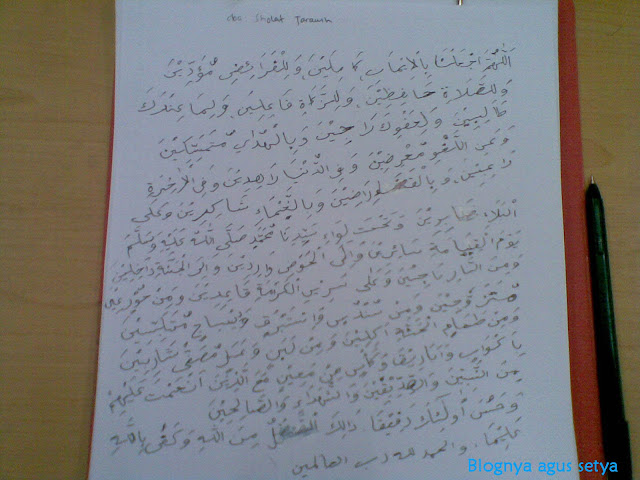 Sholat Tarawih
اَللّٰهُمَّ اجْعَلْنَا بِالْاِيْمَانِ كَامِلِيْنَ وَلِلْفَرَائِضِ مُؤَدِّيْنَ
وَلِلصَّلَاةِ حَافِظِيْنَ وَلِلزَّكَاةِ فَاعِلِيْنَ وَلِمَا عِنْدَكَ
طَالِبِيْنَ وَلِعَفْوِكَ رَاجِيْنَ وَبِالْهُدَى مُتَمَسِّكِيْنَ
وَعَنِ اللَّغْوِ مُعْرِضِيْنَ وَفِى الدُّنْيَا زَاهِدِيْنَ وَفِى الْاٰخِرَةِ
رَاغِبِيْنَ وَبِالْقَضَاءِ رَاضِيْنَ وَبِالنَّعْمَاءِ شَاكِرِيْنَ وَعَلَى
الْبَلَاءِ صَابِرِيْنَ وَتَحْتَ لِوَاءِ سَيِّدِنَا مُحَمَّدٍ صَلَّى اللهُ عَلَيْهِ وَسَلَّمَ
يَوْمَ الْقِيَامَةِ سَائِرِيْنَ وَاِلَى الْحَوْضِ وَارِدِيْنَ وَاِلَى الْجَنَّةِ دَاخِلِيْنَ
وَمِنَ النَّارِ نَاجِيْنَ وَعَلَى سَرِيْرِ الْكَرَمَةِ قَاعِدِيْنَ وَمِنْ حُوْرٍ عِيْنٍ
مُتَزَوِّجِيْنَ وَمِنْ سُنْدُسٍ وَاسْتَبْرَقٍ وَدِيْبَاجٍ مُتَلَبِّسِيْنَ
وَمِنْ طَعَامِ الْجَنَّةِ اٰكِلِيْنَ وَمِنْ لَبَنٍ وَعَسَلٍ مُصَفًّى شَارِبِيْنَ
بِاَكْوَابٍ وَاَبَارِيْقَ وَكَأْسٍ مِنْ مَعِيْنٍ مَعَ الَّذِيْنَ اَنْعَمْتَ عَلَيْهِمْ
مِنَ النَّبِيِّيْنَ وَالصِّدِّيْقِيْنَ وَالشُّهَدَاءِ وَالصَّالِحِيْنَ
وَحَسُنَ اُولٰئِكَ رَفِيْقًا ذَالِكَ الْفَضْلُ مِنَ اللهِ وَكَفَى بِاللهِ
عَلِيْمًا. والحمد لله رب العالمين
Blognya agus setya